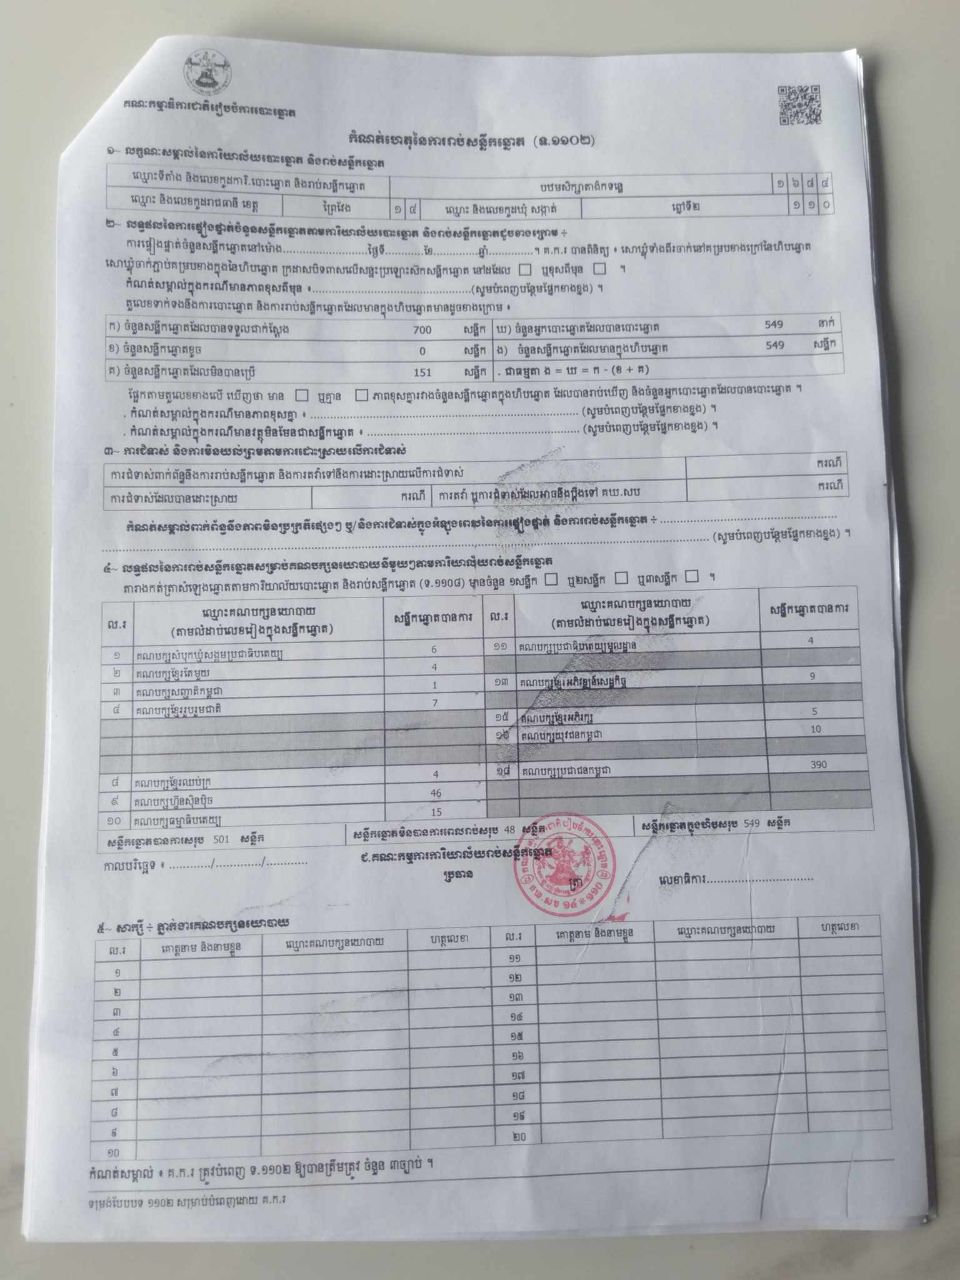 គណៈកម្មាធិការជាតិរៀបចំការបោះឆ្នោត
កំណត់ហេតុនៃការរាប់សន្លឹកឆ្នោត (ទ.១១០២)
១~ លក្ខណៈសម្គាល់នៃការិយាល័យបោះឆ្នោត និងរាប់សន្លឹកឆ្នោត
ឈ្មោះទីតាំង និងលេខកូដការិ.បោះឆ្នោត និងរាប់សន្លឹកឆ្នោត បឋមសិក្សាតាង៉ិកទន្លេ ១ ៦ ៨ ៤
ឈ្មោះ និងលេខកូដរាជធានី ខេត្ត ព្រៃវែង ១ ៤ ឈ្មោះ និងលេខកូដឃុំ សង្កាត់ ១ ១ ០
២~ លទ្ធផលនៃការផ្ទៀងផ្ទាត់ចំនួនសន្លឹកឆ្នោតតាមការិយាល័យបោះឆ្នោត និងរាប់សន្លឹកឆ្នោតដូចខាងក្រោម ÷
ការផ្ទៀងផ្ទាត់ចំនួនសន្លឹកឆ្នោតនៅម៉ោង..............ថ្ងៃទី..........ខែ...........ឆ្នាំ............។ គ.ក.រ បានពិនិត្យ ៖ សោឃ្លុំទាំងពីរចាក់នៅគម្របខាងក្រៅនៃហិបឆ្នោត
សោឃ្លុំចាក់ភ្ជាប់គម្របខាងក្នុងនៃហិបឆ្នោត ក្រដាសបិទពាសលើសន្ទះប្រឡោះសិកសន្លឹកឆ្នោត នៅដដែល ☐ ឬខុសពីមុន ☐ ។
កំណត់សម្គាល់ក្នុងករណីមានភាពខុសពីមុន ៖........................................(សូមបំពេញបន្ថែមផ្នែកខាងខ្នង) ។
តួលេខទាក់ទងនឹងការបោះឆ្នោត និងការរាប់សន្លឹកឆ្នោតដែលមានក្នុងហិបឆ្នោតមានដូចខាងក្រោម ៖
ក) ចំនួនសន្លឹកឆ្នោតដែលបានទទួលជាក់ស្តែង 700 សន្លឹក ឃ) ចំនួនអ្នកបោះឆ្នោតដែលបានបោះឆ្នោត 549 នាក់
ខ) ចំនួនសន្លឹកឆ្នោតខូច 0 សន្លឹក ង) ចំនួនសន្លឹកឆ្នោតដែលមានក្នុងហិបឆ្នោត 549 សន្លឹក
គ) ចំនួនសន្លឹកឆ្នោតដែលមិនបានប្រើ 151 សន្លឹក . ជាធម្មតា ង = ឃ = ក - (ខ + គ)
ផ្អែកតាមតួលេខខាងលើ ឃើញថា មាន ☐ ឬគ្មាន ☐ ភាពខុសគ្នារវាងចំនួនសន្លឹកឆ្នោតក្នុងហិបឆ្នោត ដែលបានរាប់ឃើញ និងចំនួនអ្នកបោះឆ្នោតដែលបានបោះឆ្នោត ។
. កំណត់សម្គាល់ក្នុងករណីមានភាពខុសគ្នា ៖ ........................................ (សូមបំពេញបន្ថែមផ្នែកខាងខ្នង) ។
. កំណត់សម្គាល់ក្នុងករណីមានវត្ថុមិនមែនជាសន្លឹកឆ្នោត ៖ ........................................ (សូមបំពេញបន្ថែមផ្នែកខាងខ្នង) ។
៣~ ការជំទាស់ និងការមិនយល់ព្រមតាមការដោះស្រាយលើការជំទាស់
ការជំទាស់ពាក់ព័ន្ធនឹងការរាប់សន្លឹកឆ្នោត និងការតវ៉ាទៅនឹងការដោះស្រាយលើការជំទាស់ ករណី
ការជំទាស់ដែលបានដោះស្រាយ ករណី ការតវ៉ា ឬការជំទាស់ដែលអាចនឹងប្តឹងទៅ គឃ.សប ករណី
កំណត់សម្គាល់ពាក់ព័ន្ធនឹងភាពមិនប្រក្រតីផ្សេងៗ ឬ/និងការជំទាស់ក្នុងអំឡុងពេលនៃការផ្ទៀងផ្ទាត់ និងការរាប់សន្លឹកឆ្នោត ÷ ........................................
........................................ (សូមបំពេញបន្ថែមផ្នែកខាងខ្នង) ។
៤~ លទ្ធផលនៃការរាប់សន្លឹកឆ្នោតសម្រាប់គណបក្សនយោបាយនីមួយៗតាមការិយាល័យរាប់សន្លឹកឆ្នោត
តារាងកត់ត្រាសំឡេងឆ្នោតតាមការិយាល័យបោះឆ្នោត និងរាប់សន្លឹកឆ្នោត (ទ.១១០៨) មានចំនួន ១សន្លឹក ☐ ឬ២សន្លឹក ☐ ឬ៣សន្លឹក ☐ ។
ល.រ ឈ្មោះគណបក្សនយោបាយ (តាមលំដាប់លេខរៀងក្នុងសន្លឹកឆ្នោត) សន្លឹកឆ្នោតបានការ ល.រ ឈ្មោះគណបក្សនយោបាយ (តាមលំដាប់លេខរៀងក្នុងសន្លឹកឆ្នោត) សន្លឹកឆ្នោតបានការ
១ គណបក្សសំបុកឃ្មុំសង្គមប្រជាធិបតេយ្យ 6 ១១ គណបក្សប្រជាធិបតេយ្យមូលដ្ឋាន 4
២ គណបក្សខ្មែរតែមួយ 4
៣ គណបក្សសញ្ជាតិកម្ពុជា 1 ១៣ គណបក្សខ្មែរអភិវឌ្ឍន៍សេដ្ឋកិច្ច 9
៤ គណបក្សខ្មែររួបរួមជាតិ 7
១៥ គណបក្សខ្មែរអភិរក្ស 5
១៦ គណបក្សយុវជនកម្ពុជា 10
៨ គណបក្សខ្មែរឈប់ក្រ 4 ១៨ គណបក្សប្រជាជនកម្ពុជា 390
៩ គណបក្សហ៊្វុនស៊ិនប៉ិច 46
១០ គណបក្សធម្មាធិបតេយ្យ 15
សន្លឹកឆ្នោតបានការសរុប 501 សន្លឹក សន្លឹកឆ្នោតមិនបានការពេលរាប់សរុប 48 សន្លឹក សន្លឹកឆ្នោតក្នុងហិបសរុប 549 សន្លឹក
កាលបរិច្ឆេទ ៖ .........../............/...........
ជ.គណៈកម្មការការិយាល័យរាប់សន្លឹកឆ្នោត
ប្រធាន ត្រា លេខាធិការ..............................
គឃ.សប ១៤*១១០
៥~ សាក្សី ÷ ភ្នាក់ងារគណបក្សនយោបាយ
ល.រ គោត្តនាម និងនាមខ្លួន ឈ្មោះគណបក្សនយោបាយ ហត្ថលេខា ល.រ គោត្តនាម និងនាមខ្លួន ឈ្មោះគណបក្សនយោបាយ ហត្ថលេខា
១ ១១
២ ១២
៣ ១៣
៤ ១៤
៥ ១៥
៦ ១៦
៧ ១៧
៨ ១៨
៩ ១៩
១០ ២០
កំណត់សម្គាល់ ៖ គ.ក.រ ត្រូវបំពេញ ទ.១១០២ ឱ្យបានត្រឹមត្រូវ ចំនួន ៣ច្បាប់ ។
ទម្រង់បែបបទ ១១០២ សម្រាប់បំពេញដោយ គ.ក.រ